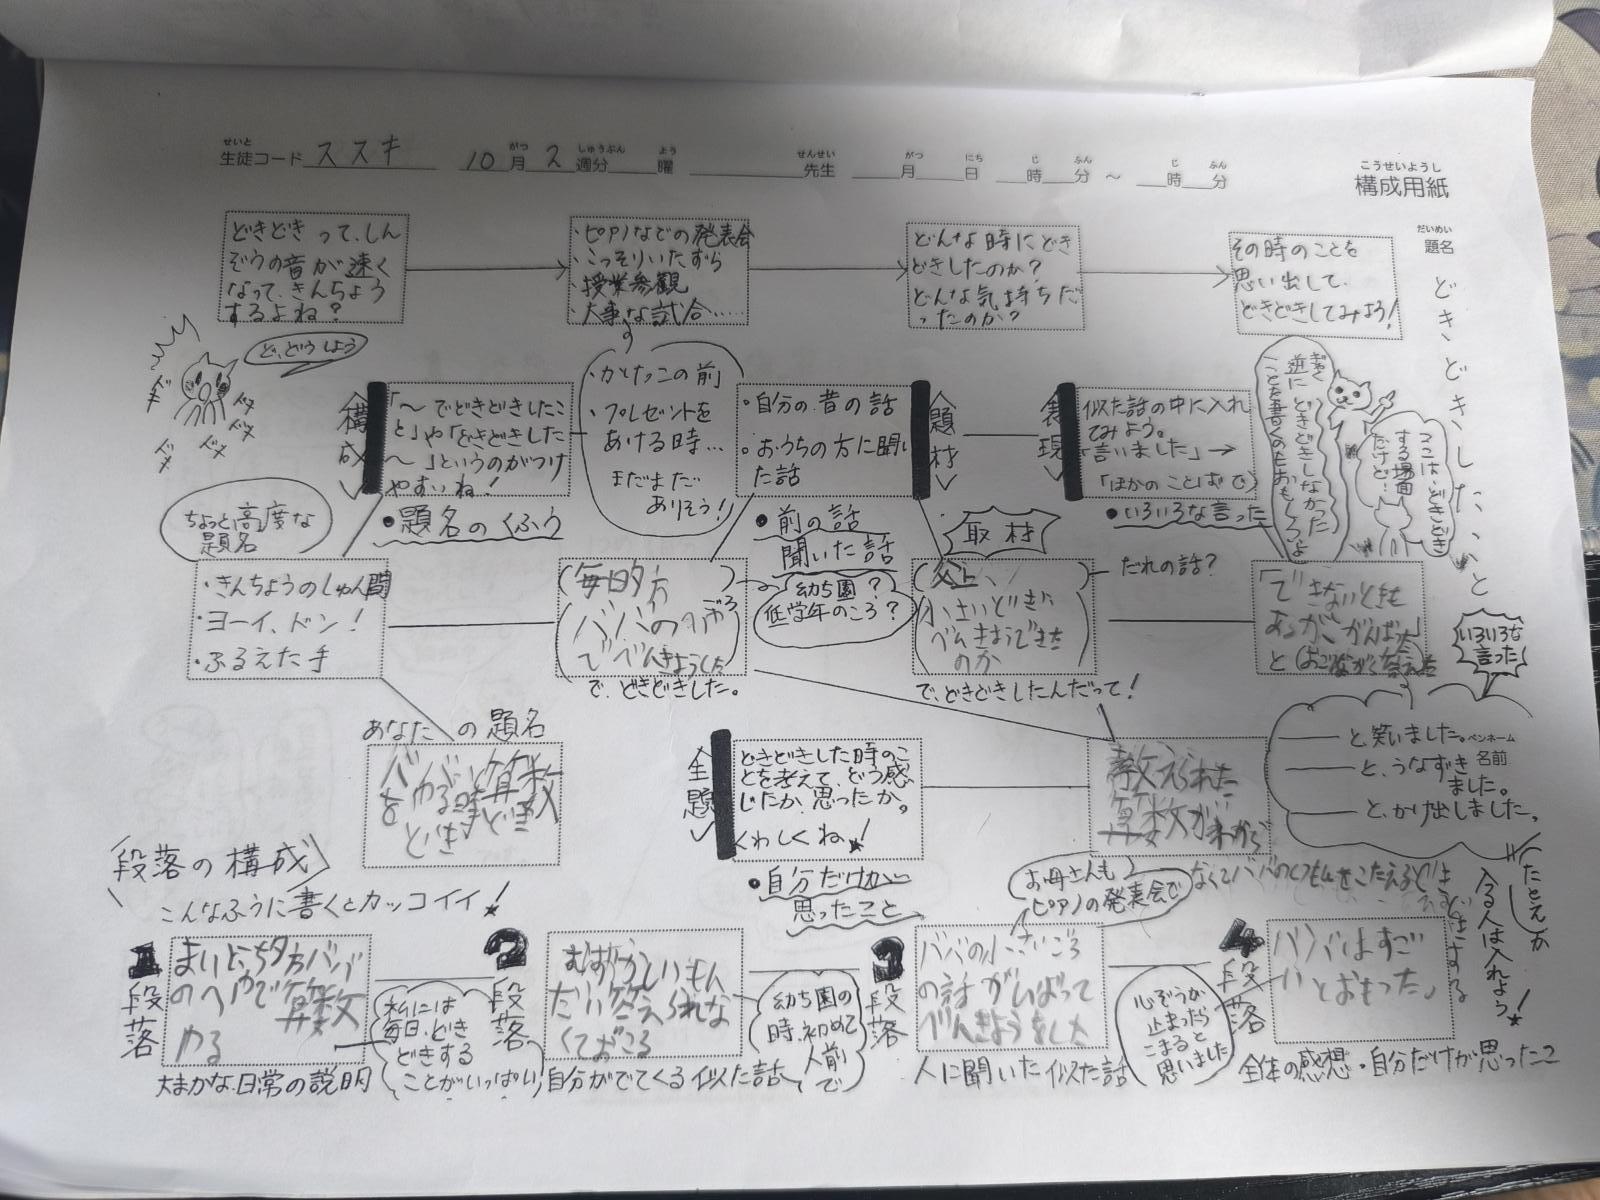 せいと
生徒コード ススキ 10月 2週分 曜 先生 月 日 時 分 ～ 時 分
がつ しゅうぶん よう せんせい がつ にち じ ふん じ ふん
こうせいようし
構成用紙
だいめい
題名
どきどきした、こと
どきどきって、しん
ぞうの音が速く
なって、きんちょう
するよね？
・ピアノなどの発表会
・こっそりいたずら
・授業参観
・大事な試合……
どんな時にどき
どきしたのか？
どんな気持ちだ
ったのか？
その時のことを
思い出して、
どきどきしてみよう！
ど、どうしよう
ドキ
ドキ
ドキ
ドキ
構成
「～でどきどきしたこ
と」や「どきどきした
～」というのがつけ
やすいね！
●題名のくふう
・かけっこの前
・プレゼントを
あける時…
まだまだ
ありそう！
・自分の昔の話
・おうちの方に聞い
た話
●前の話
聞いた話
題材
表現
似た話の中に入れ
てみよう。
「言いました」→
「ほかのことばで」
●いろいろな言った
ぎゃく
逆にどきどきしなかった
ことを書くのもおもしろいよ
ここは、どきどき
する場面
だけど…
ちょっと高度な
題名
・きんちょうのしゅん間
・ヨーイ、ドン！
・ふるえた手
(毎日夕方 )
ババの
でべんきょうした
で、どきどきした。
幼ち園？
低学年のころ？
取材
小さいときに
べんきょうできた
のか
で、どきどきしたんだって！
だれの話？
「できないときも
あるが、がんばった」
と
いろいろな
言った
――と、笑いました。
――と、うなずき
ました。
――と、かけ出しました。
ペンネーム
名前
あなたの題名
ババが算数
をやる時
どきどき
主題
どきどきした時のこ
とを考えて、どう感
じたか、思ったか。
くわしくね！
●自分だけが
思ったこと
教えられた
算数がわから
なくてババのしつもんをこたえるとき
どきどきする
お母さんも
ピアノの発表会で
たとえが
入る人は入れよう！
段落の構成
こんなふうに書くとカッコイイ！
1段落
まいにち夕方ババ
のへやで算数
やる
大まかな日常の説明
私には
毎日、どき
どきする
ことがいっぱい
2段落
むずかしいもん
だい答えられな
くておこる
自分がでてくる似た話
幼ち園の
時、初めて
人前で
3段落
ババの小さいころ
の話 がんばって
べんきょうをした
人に聞いた似た話
心ぞうが
止まったら
こまると
思いました
4段落
ババはすご
いとおもった。
全体の感想・自分だけが思ったこと